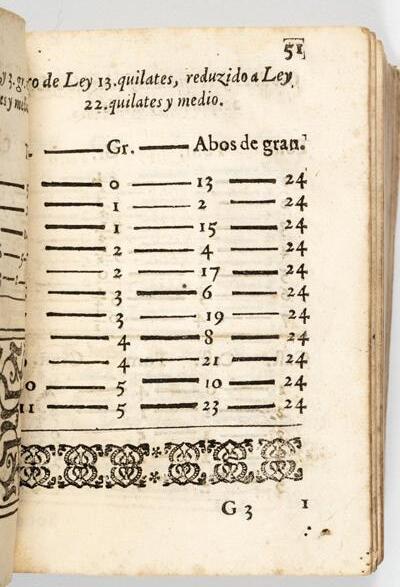 51
ro de Ley 13.quilates, reduzido a Ley,
22.quilates y medio.
Gr. Abos de gran.
0 13 24
1 2 24
1 15 24
2 4 24
2 17 24
3 6 24
3 19 24
4 8 24
4 21 24
0 5 10 24
11 5 23 24
G 3 1